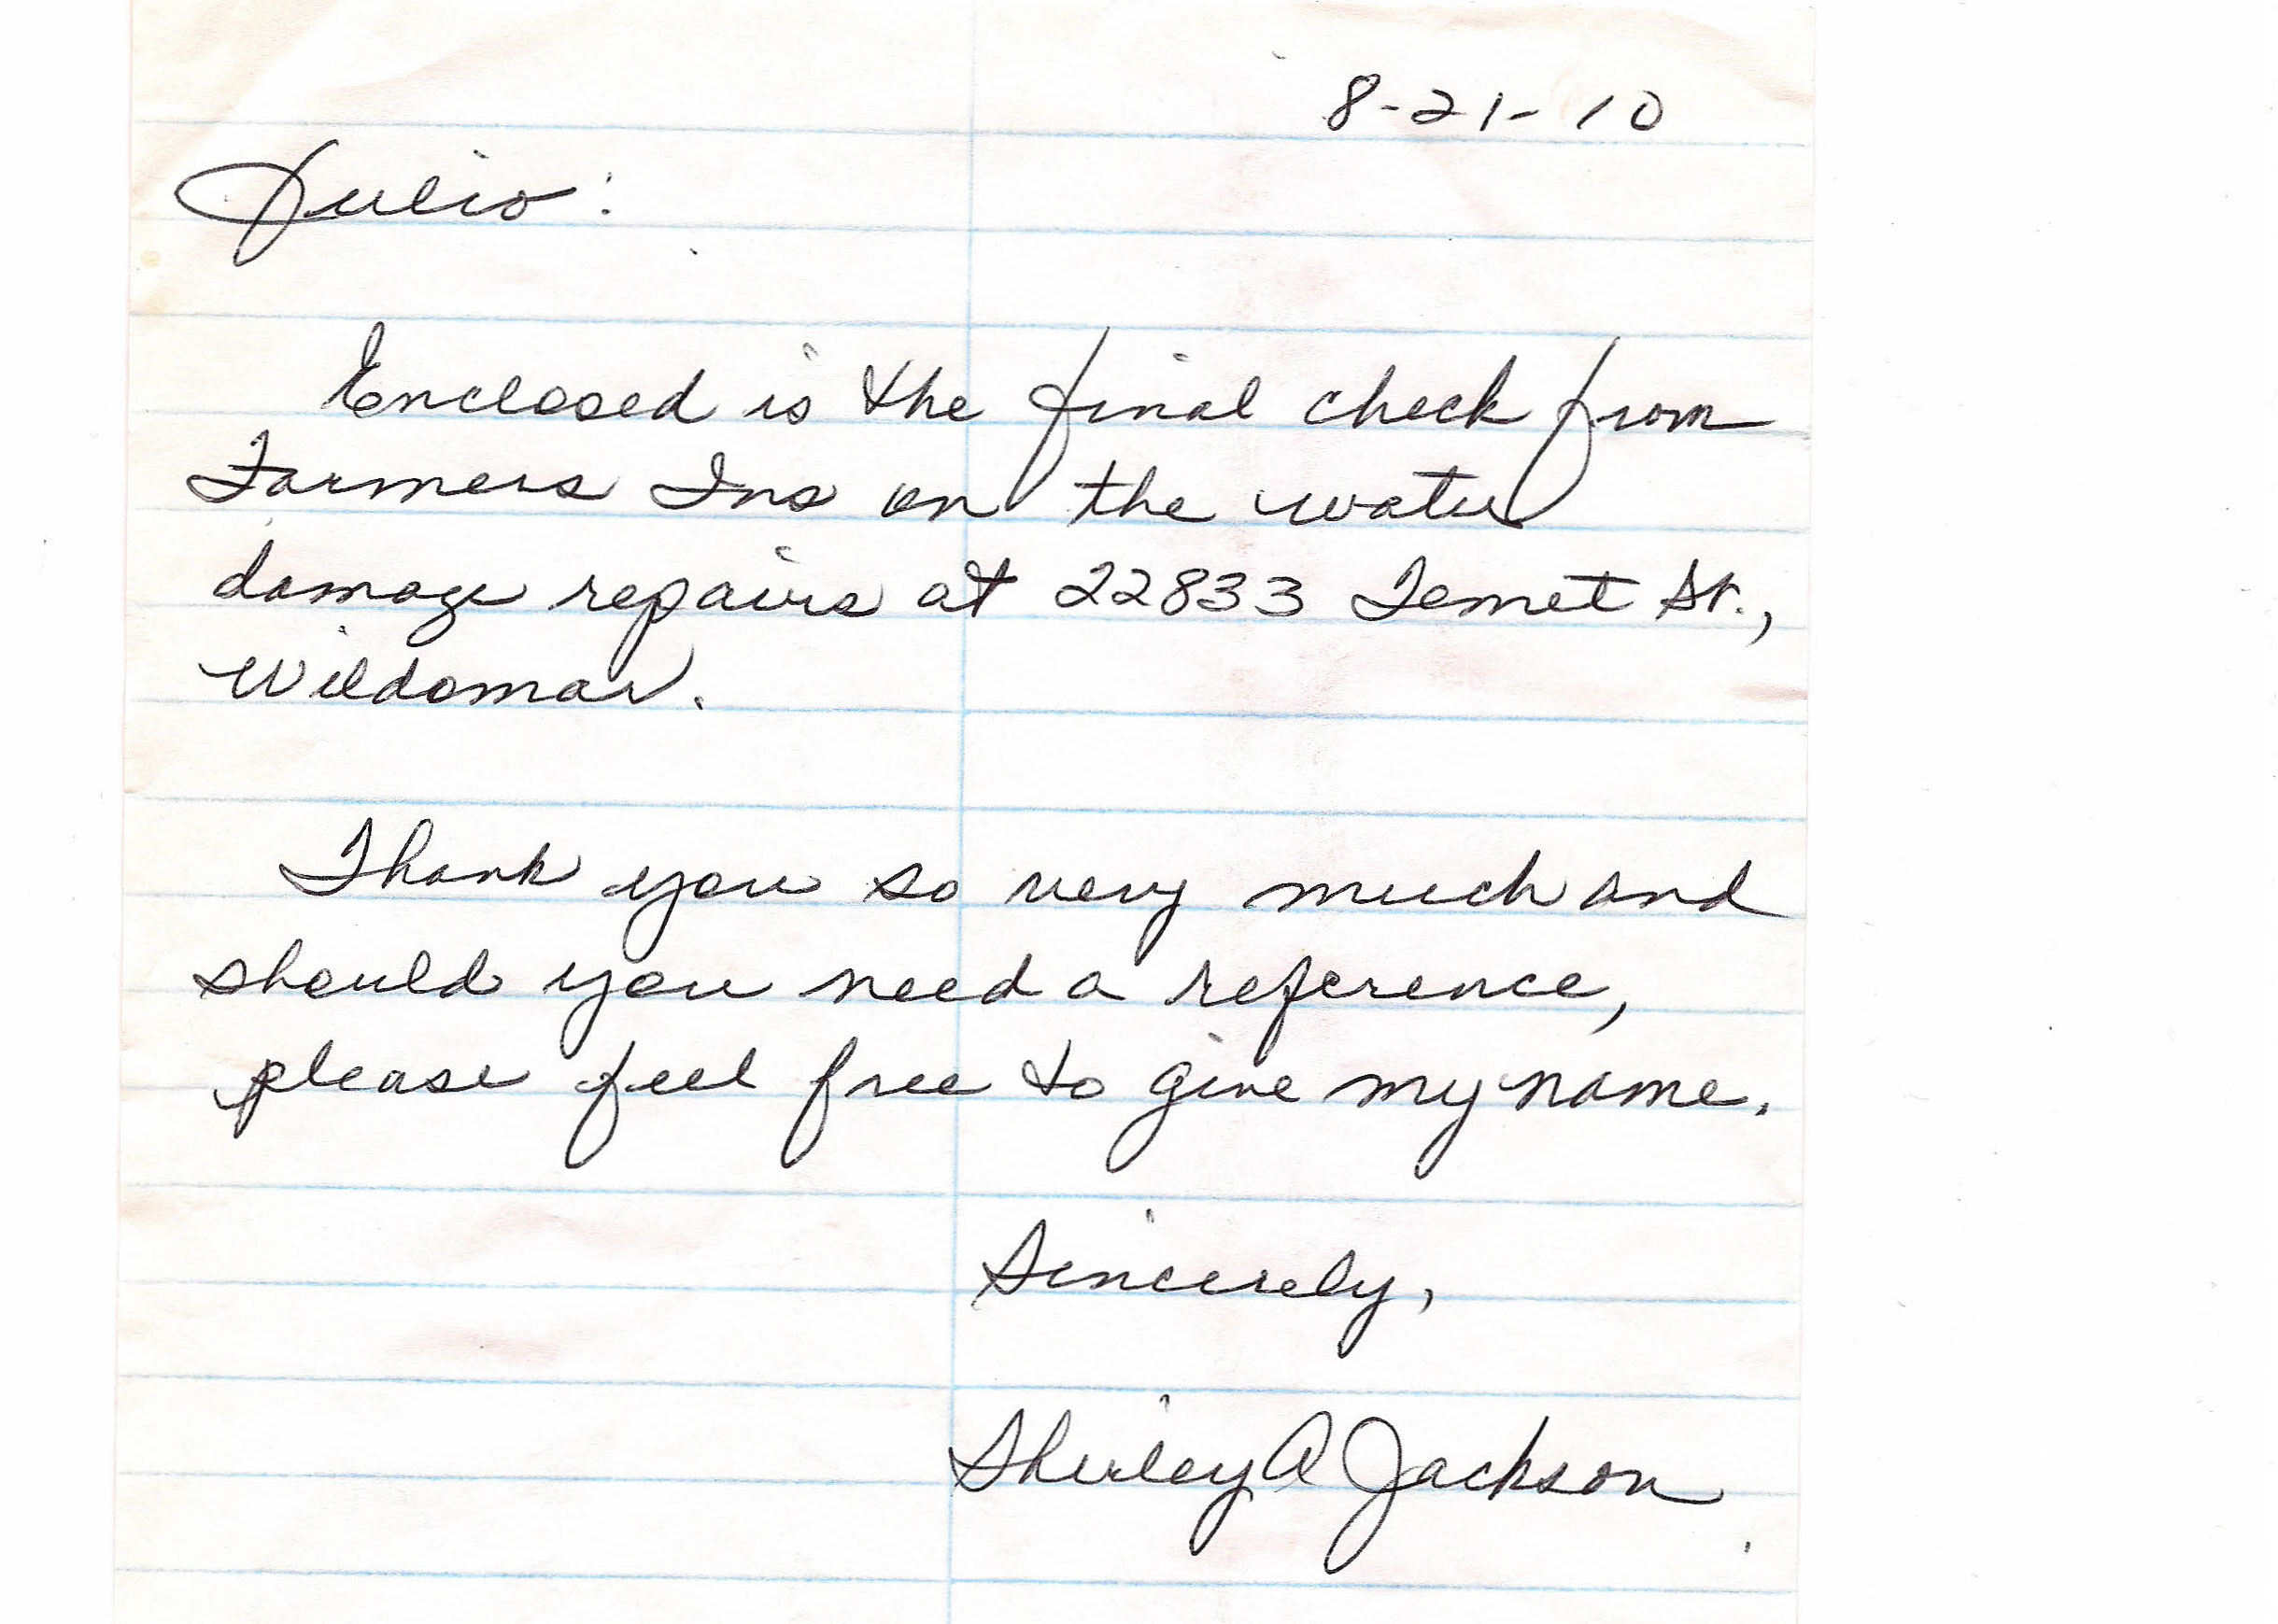 8-21-10
Julio:
Enclosed is the final check from
Farmers Ins on the water
damage repairs at 22833 Temet St.,
Wildomar.
Thank you so very much and
should you need a reference,
please feel free to give my name.
Sincerely,
Shirley A Jackson